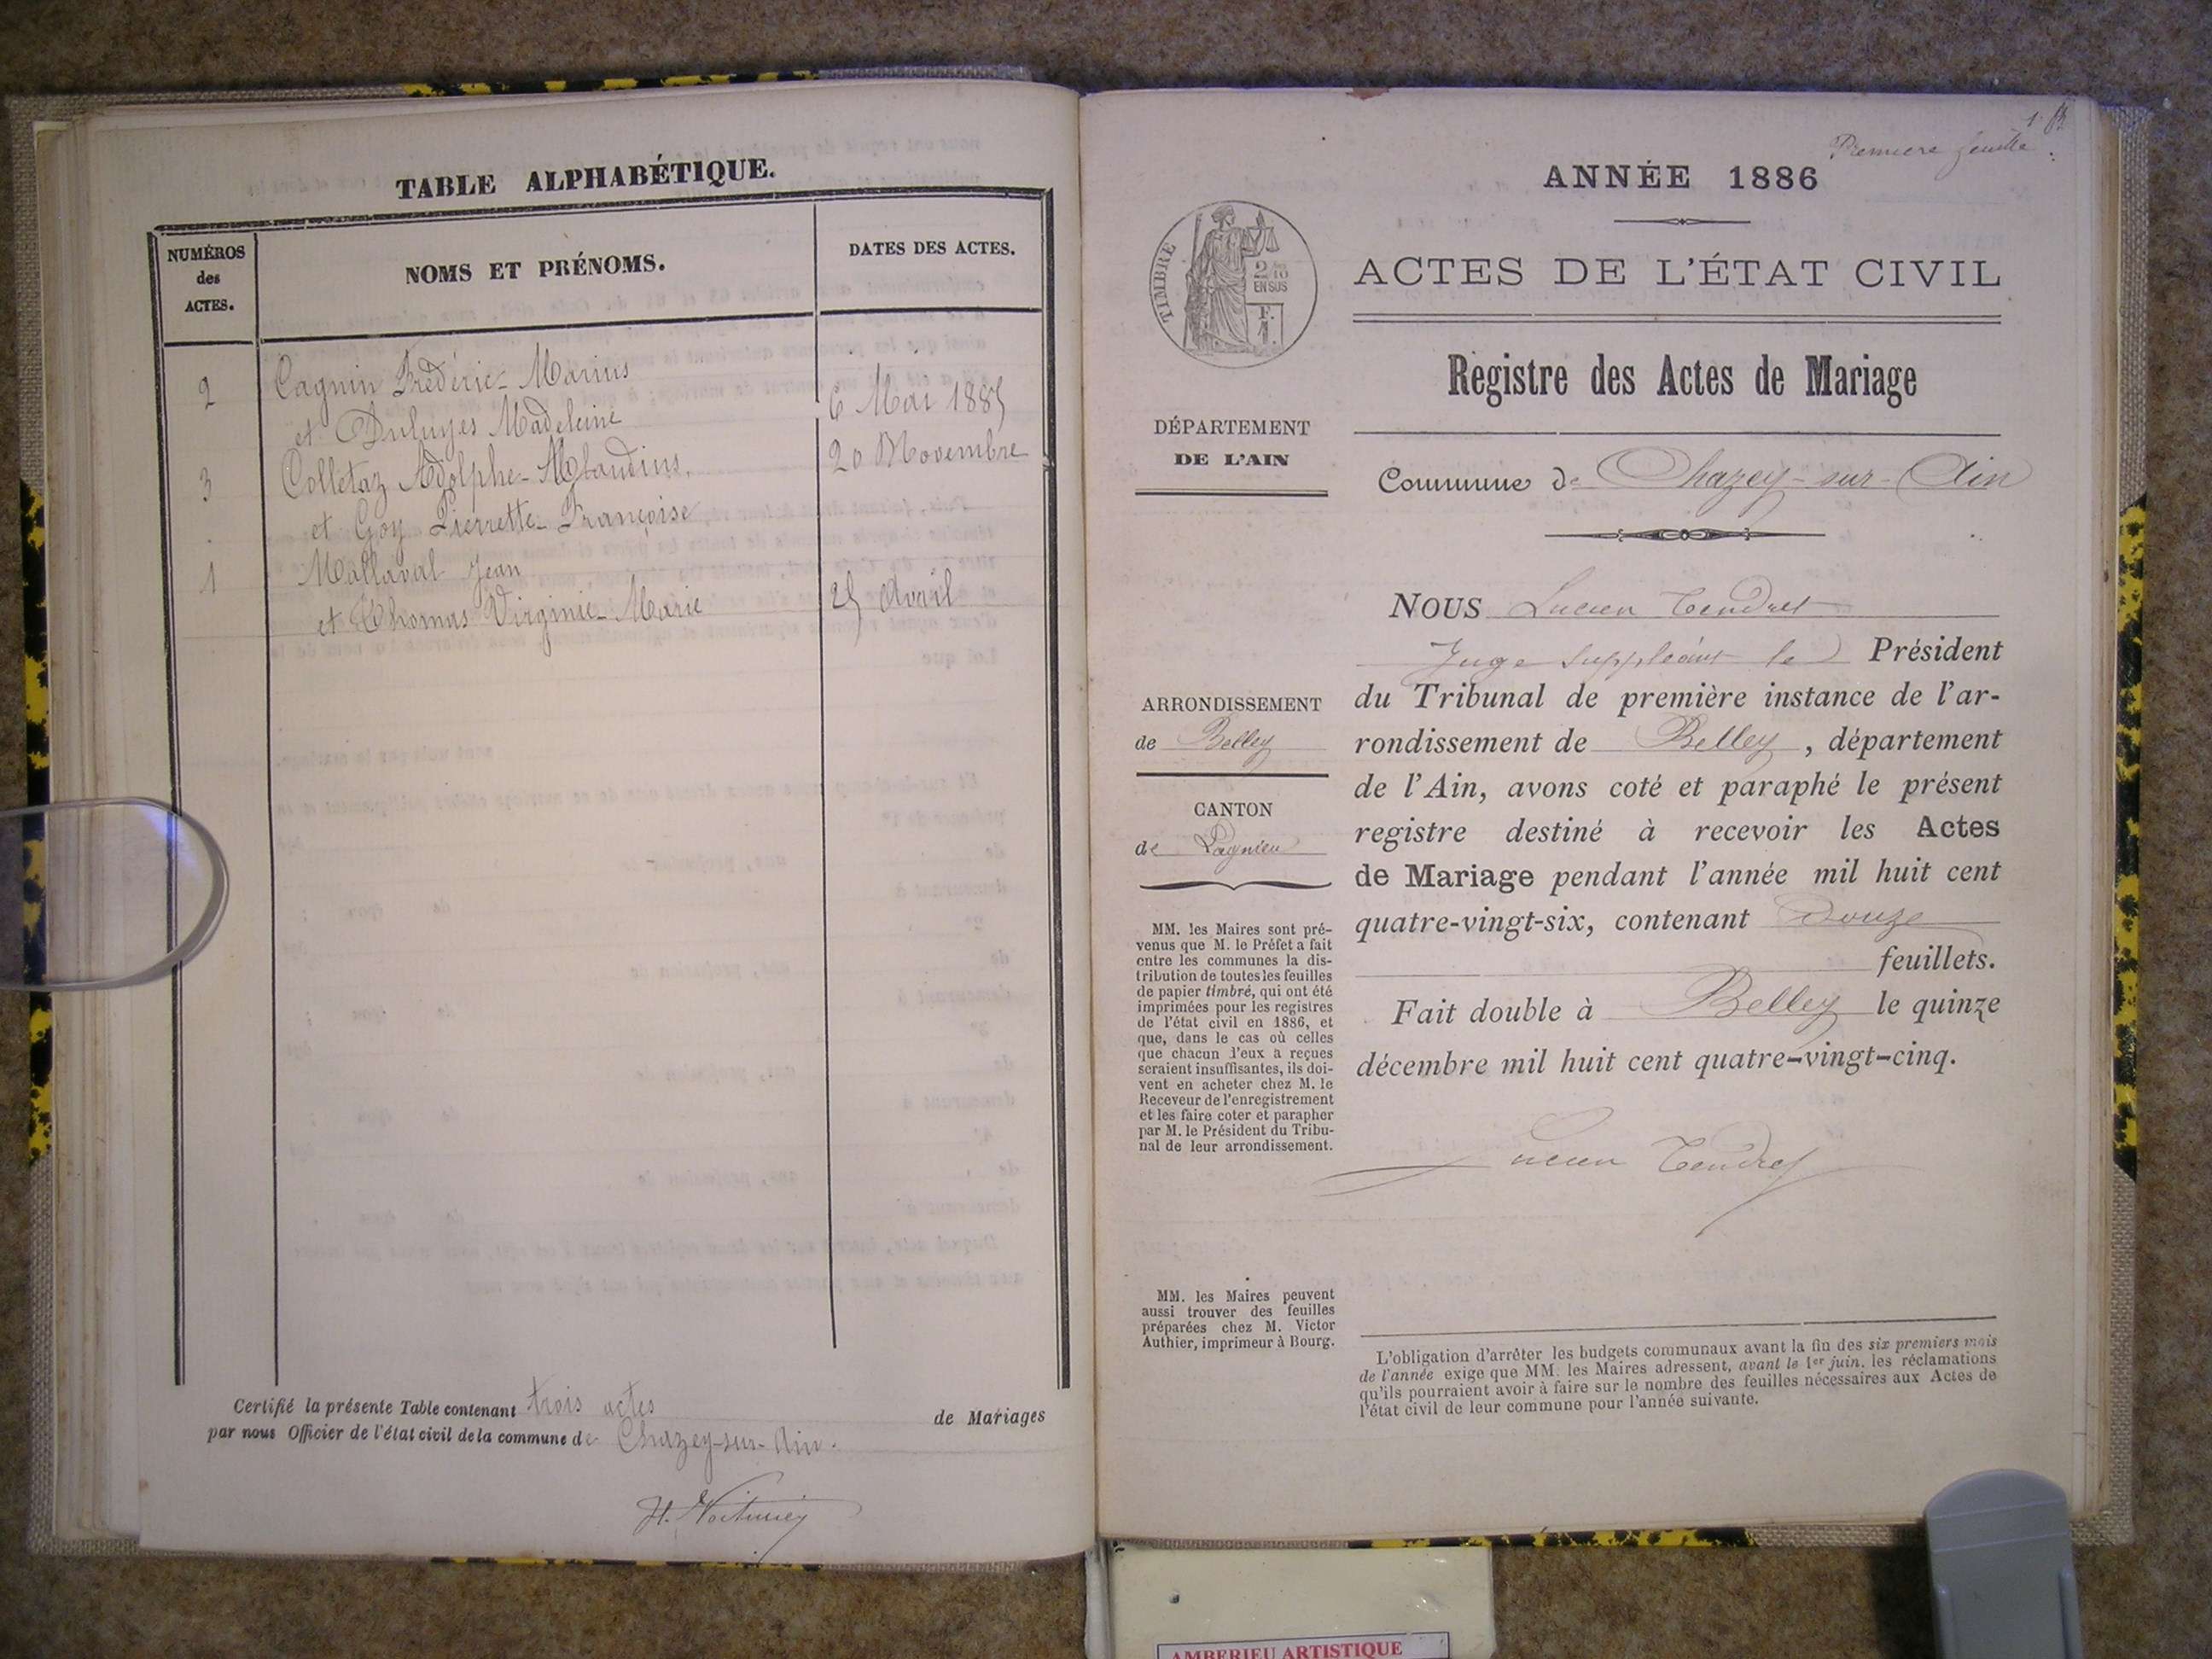 TABLE ALPHABÉTIQUE.
NUMÉROS
des
ACTES.
NOMS ET PRÉNOMS.
DATES DES ACTES.
2
Cagnin Frédéric-Marius
et Duluyes Madeleine
6 Mai 1885
3
Colletaz Adolphe-
et Goy Pierrette-Françoise
20 Novembre
1
Mallaval Jean
et Thomas Virginie-Marie
25 Avril
Certifié la présente Table contenant trois actes de Mariages
par nous Officier de l'état civil de la commune de Chazey-sur-Ain.
Première feuille
ANNÉE 1886
TIMBRE
2/10
EN SUS
F.
1.
ACTES DE L'ÉTAT CIVIL
Registre des Actes de Mariage
DÉPARTEMENT
DE L'AIN
Commune de Chazey-sur-Ain
NOUS Lucien Tendret
Juge suppléant le Président
du Tribunal de première instance de l'ar-
rondissement de Belley, département
de l'Ain, avons coté et paraphé le présent
registre destiné à recevoir les Actes
de Mariage pendant l'année mil huit cent
quatre-vingt-six, contenant douze
feuillets.
Fait double à Belley le quinze
décembre mil huit cent quatre-vingt-cinq.
Lucien Tendret
ARRONDISSEMENT
de Belley
CANTON
de Lagnieu
MM. les Maires sont pré-
venus que M. le Préfet a fait
entre les communes la dis-
tribution de toutes les feuilles
de papier timbré, qui ont été
imprimées pour les registres
de l'état civil en 1886, et
que, dans le cas où celles
que chacun d'eux a reçues
seraient insuffisantes, ils doi-
vent en acheter chez M. le
Receveur de l'enregistrement
et les faire coter et parapher
par M. le Président du Tribu-
nal de leur arrondissement.
MM. les Maires peuvent
aussi trouver des feuilles
préparées chez M. Victor
Authier, imprimeur à Bourg.
L'obligation d'arrêter les budgets communaux avant la fin des six premiers mois
de l'année exige que MM. les Maires adressent, avant le 1er juin, les réclamations
qu'ils pourraient avoir à faire sur le nombre des feuilles nécessaires aux Actes de
l'état civil de leur commune pour l'année suivante.
AMBERIEU ARTISTIQUE